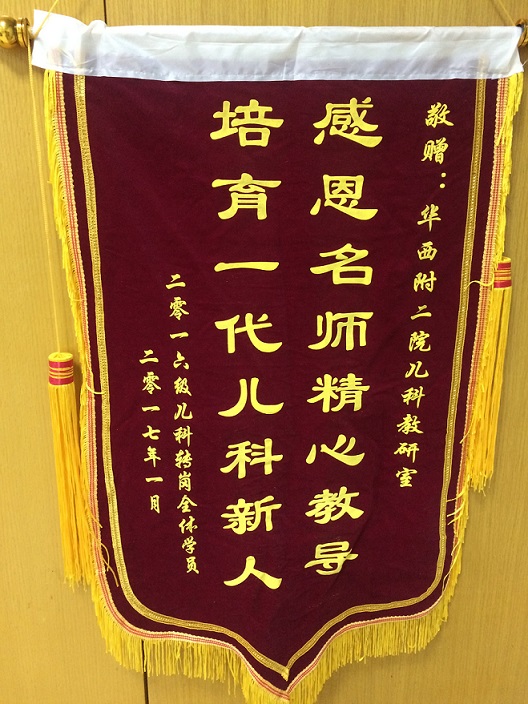 敬赠：华西附二院儿科教研室
感恩名师精心教导
培育一代儿科新人
二零一六级儿科转岗全体学员
二零一七年一月